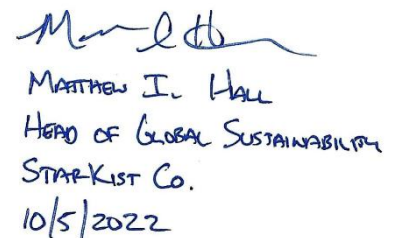 Matthew I. Hall
Head of Global Sustainability
StarKist Co.
10/5/2022